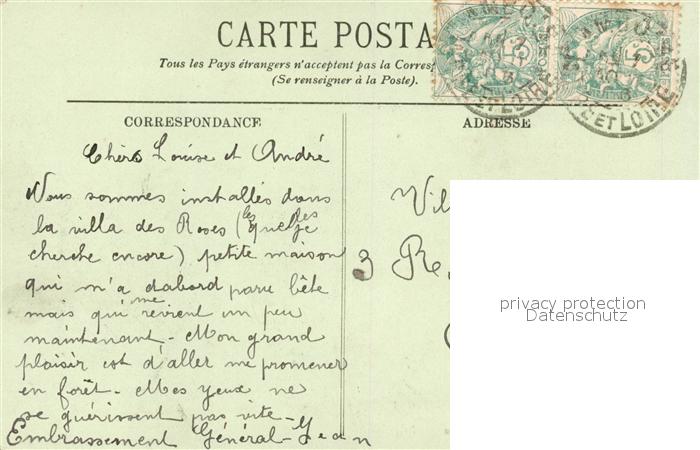 CARTE POSTA
Tous les Pays étrangers n'acceptent pas la Corresp
(Se renseigner à la Poste).
CORRESPONDANCE
Chers Louise et André
Nous sommes installés dans
la villa des Roses (les quelles je
cherche encore) petite maison
qui m'a dabord parue bête
mais qui me revient un peu
maintenant - Mon grand
plaisir est d'aller me promener
en forêt - Mes yeux ne
se guérissent pas vite -
Embrassement Général - Jean
ADRESSE
Vil
3 R
ET LOIRE
ET LOIRE
5
5
privacy protection
Datenschutz